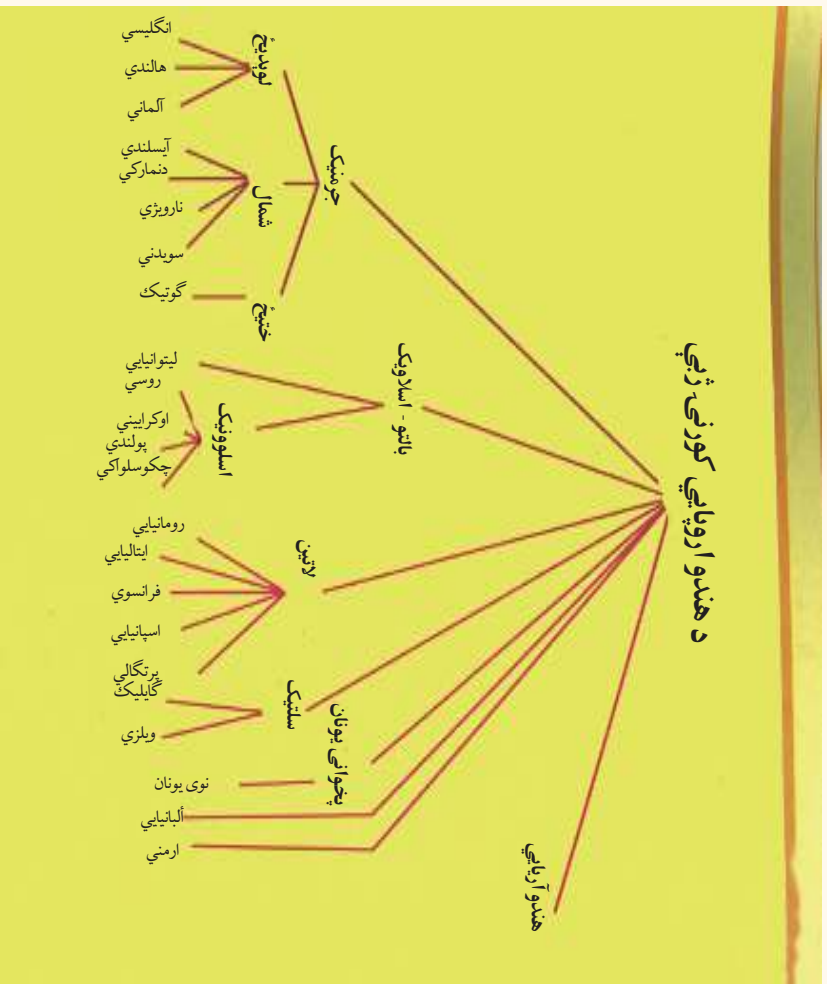 د هندو اروپايي کورنۍ ژبې
جرمنيک
لويديځ
انگليسي
هالندي
آلماني
شمال
آيسلندي
دنمارکي
نارويژي
سويدني
ختيځ
گوتيک
بالتو - اسلاويک
ليتوانيايي
اسلوونيک
روسي
اوکراييني
پولندي
چکوسلواکي
لاتين
رومانيايي
ايتاليايي
فرانسوي
اسپانيايي
پرتگالي
سلتيک
گايليک
ويلزي
پخوانی يونان
نوی يونان
ألبانيايي
ارمني
هندو آريايي